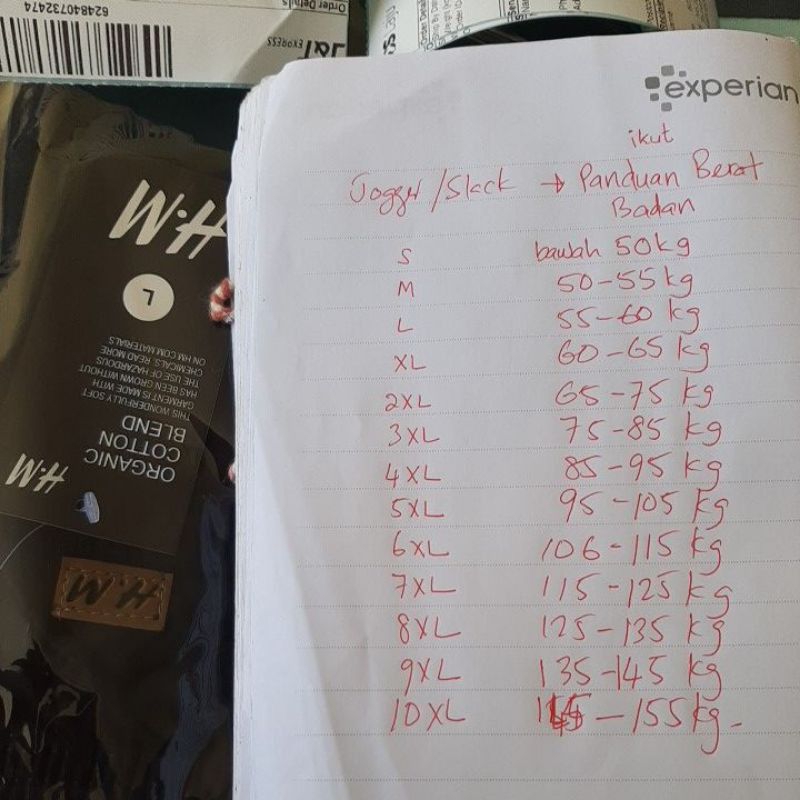 62484073247​4
Order Details
J&T EXPRESS
experian
ikut
Jogger/Slack → Panduan Berat
Badan
S bawah 50kg
M 50-55kg
L 55-60 kg
XL 60-65 kg
2XL 65-75 kg
3XL 75-85 kg
4XL 85-95 kg
5XL 95-105 kg
6XL 106-115 kg
7XL 115-125 kg
8XL 125-135 kg
9XL 135-145 kg
10XL 145-155kg-
H.M
L
THIS WONDERFULLY SOFT
GARMENT IS MADE WITH
HAS BEEN GROWN WITHOUT
THE USE OF HAZARDOUS
CHEMICALS. READ MORE
ON HM.COM.MATERIALS
ORGANIC
COTTON
BLEND
H.M
H.M